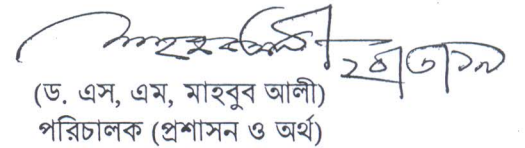 (ড. এস, এম, মাহবুব আলী)
পরিচালক (প্রশাসন ও অর্থ)